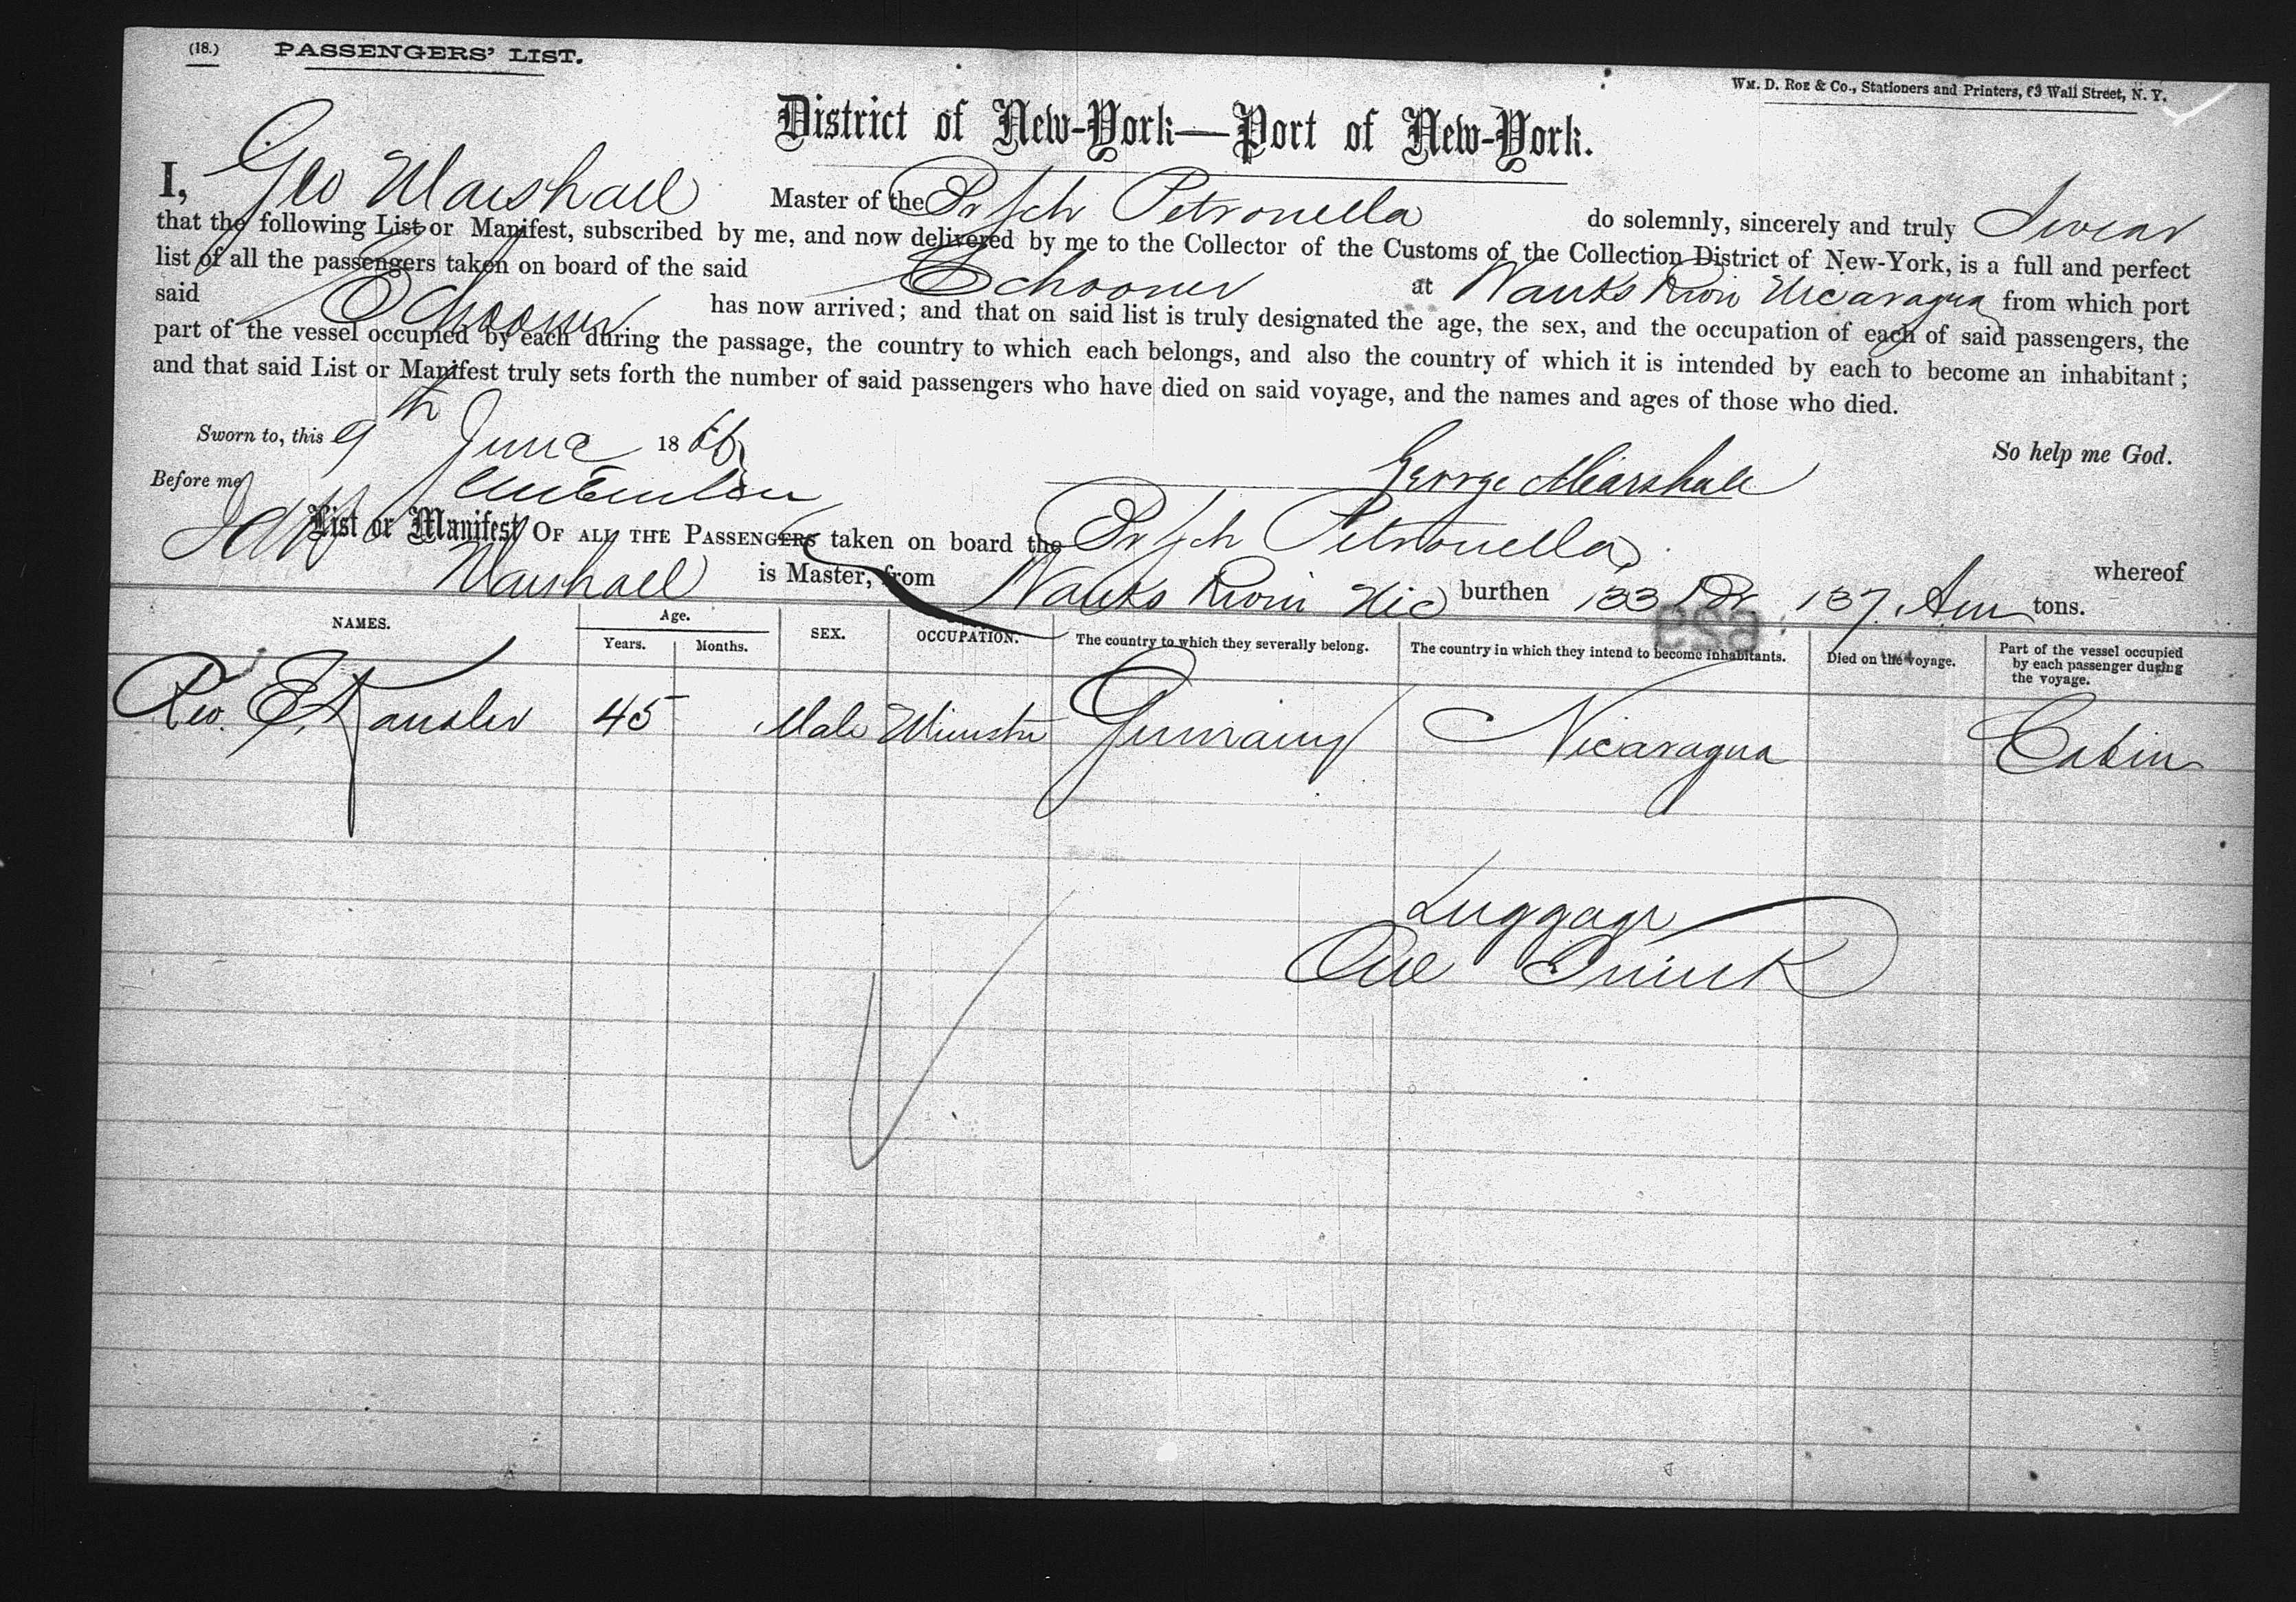 (18.) PASSENGERS' LIST.
Wm. D. Roe & Co., Stationers and Printers, 63 Wall Street, N. Y.
District of New-York—Port of New-York.
I, Geo Marshall Master of the Br Sch Petronella do solemnly, sincerely and truly Swear
that the following List or Manifest, subscribed by me, and now delivered by me to the Collector of the Customs of the Collection District of New-York, is a full and perfect
list of all the passengers taken on board of the said Schooner at Wanks River Nicaragua from which port
said Schooner has now arrived; and that on said list is truly designated the age, the sex, and the occupation of each of said passengers, the
part of the vessel occupied by each during the passage, the country to which each belongs, and also the country of which it is intended by each to become an inhabitant;
and that said List or Manifest truly sets forth the number of said passengers who have died on said voyage, and the names and ages of those who died.
Sworn to, this 9th June 1866
So help me God.
Before me
George Marshall
List or Manifest OF ALL THE PASSENGERS taken on board the Br Sch Petronella whereof
Marshall is Master, from Wanks River Nic burthen 133 Br. 137 Am tons.
NAMES. Age. Years. Months. SEX. OCCUPATION. The country to which they severally belong. The country in which they intend to become inhabitants. Died on the voyage. Part of the vessel occupied by each passenger during the voyage.
Rev. 45 Male Minister Germany Nicaragua Cabin
Luggage
One Trunk